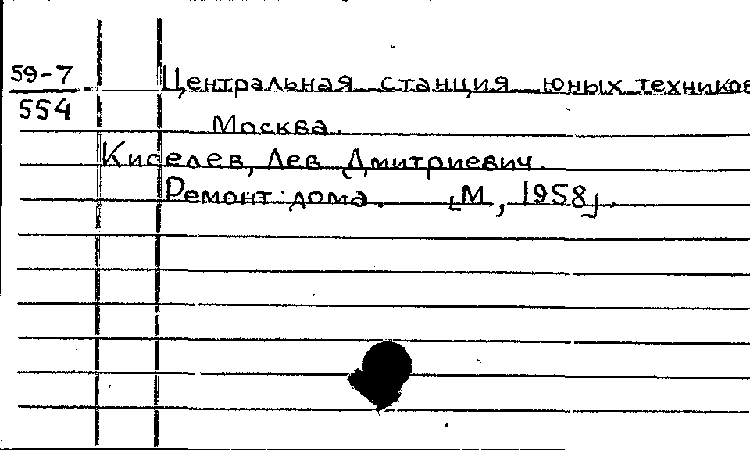 59-7
554
Центральная станция юных техников
Москва.
Киселев, Лев Дмитриевич.
Ремонт дома. [М, 1958].